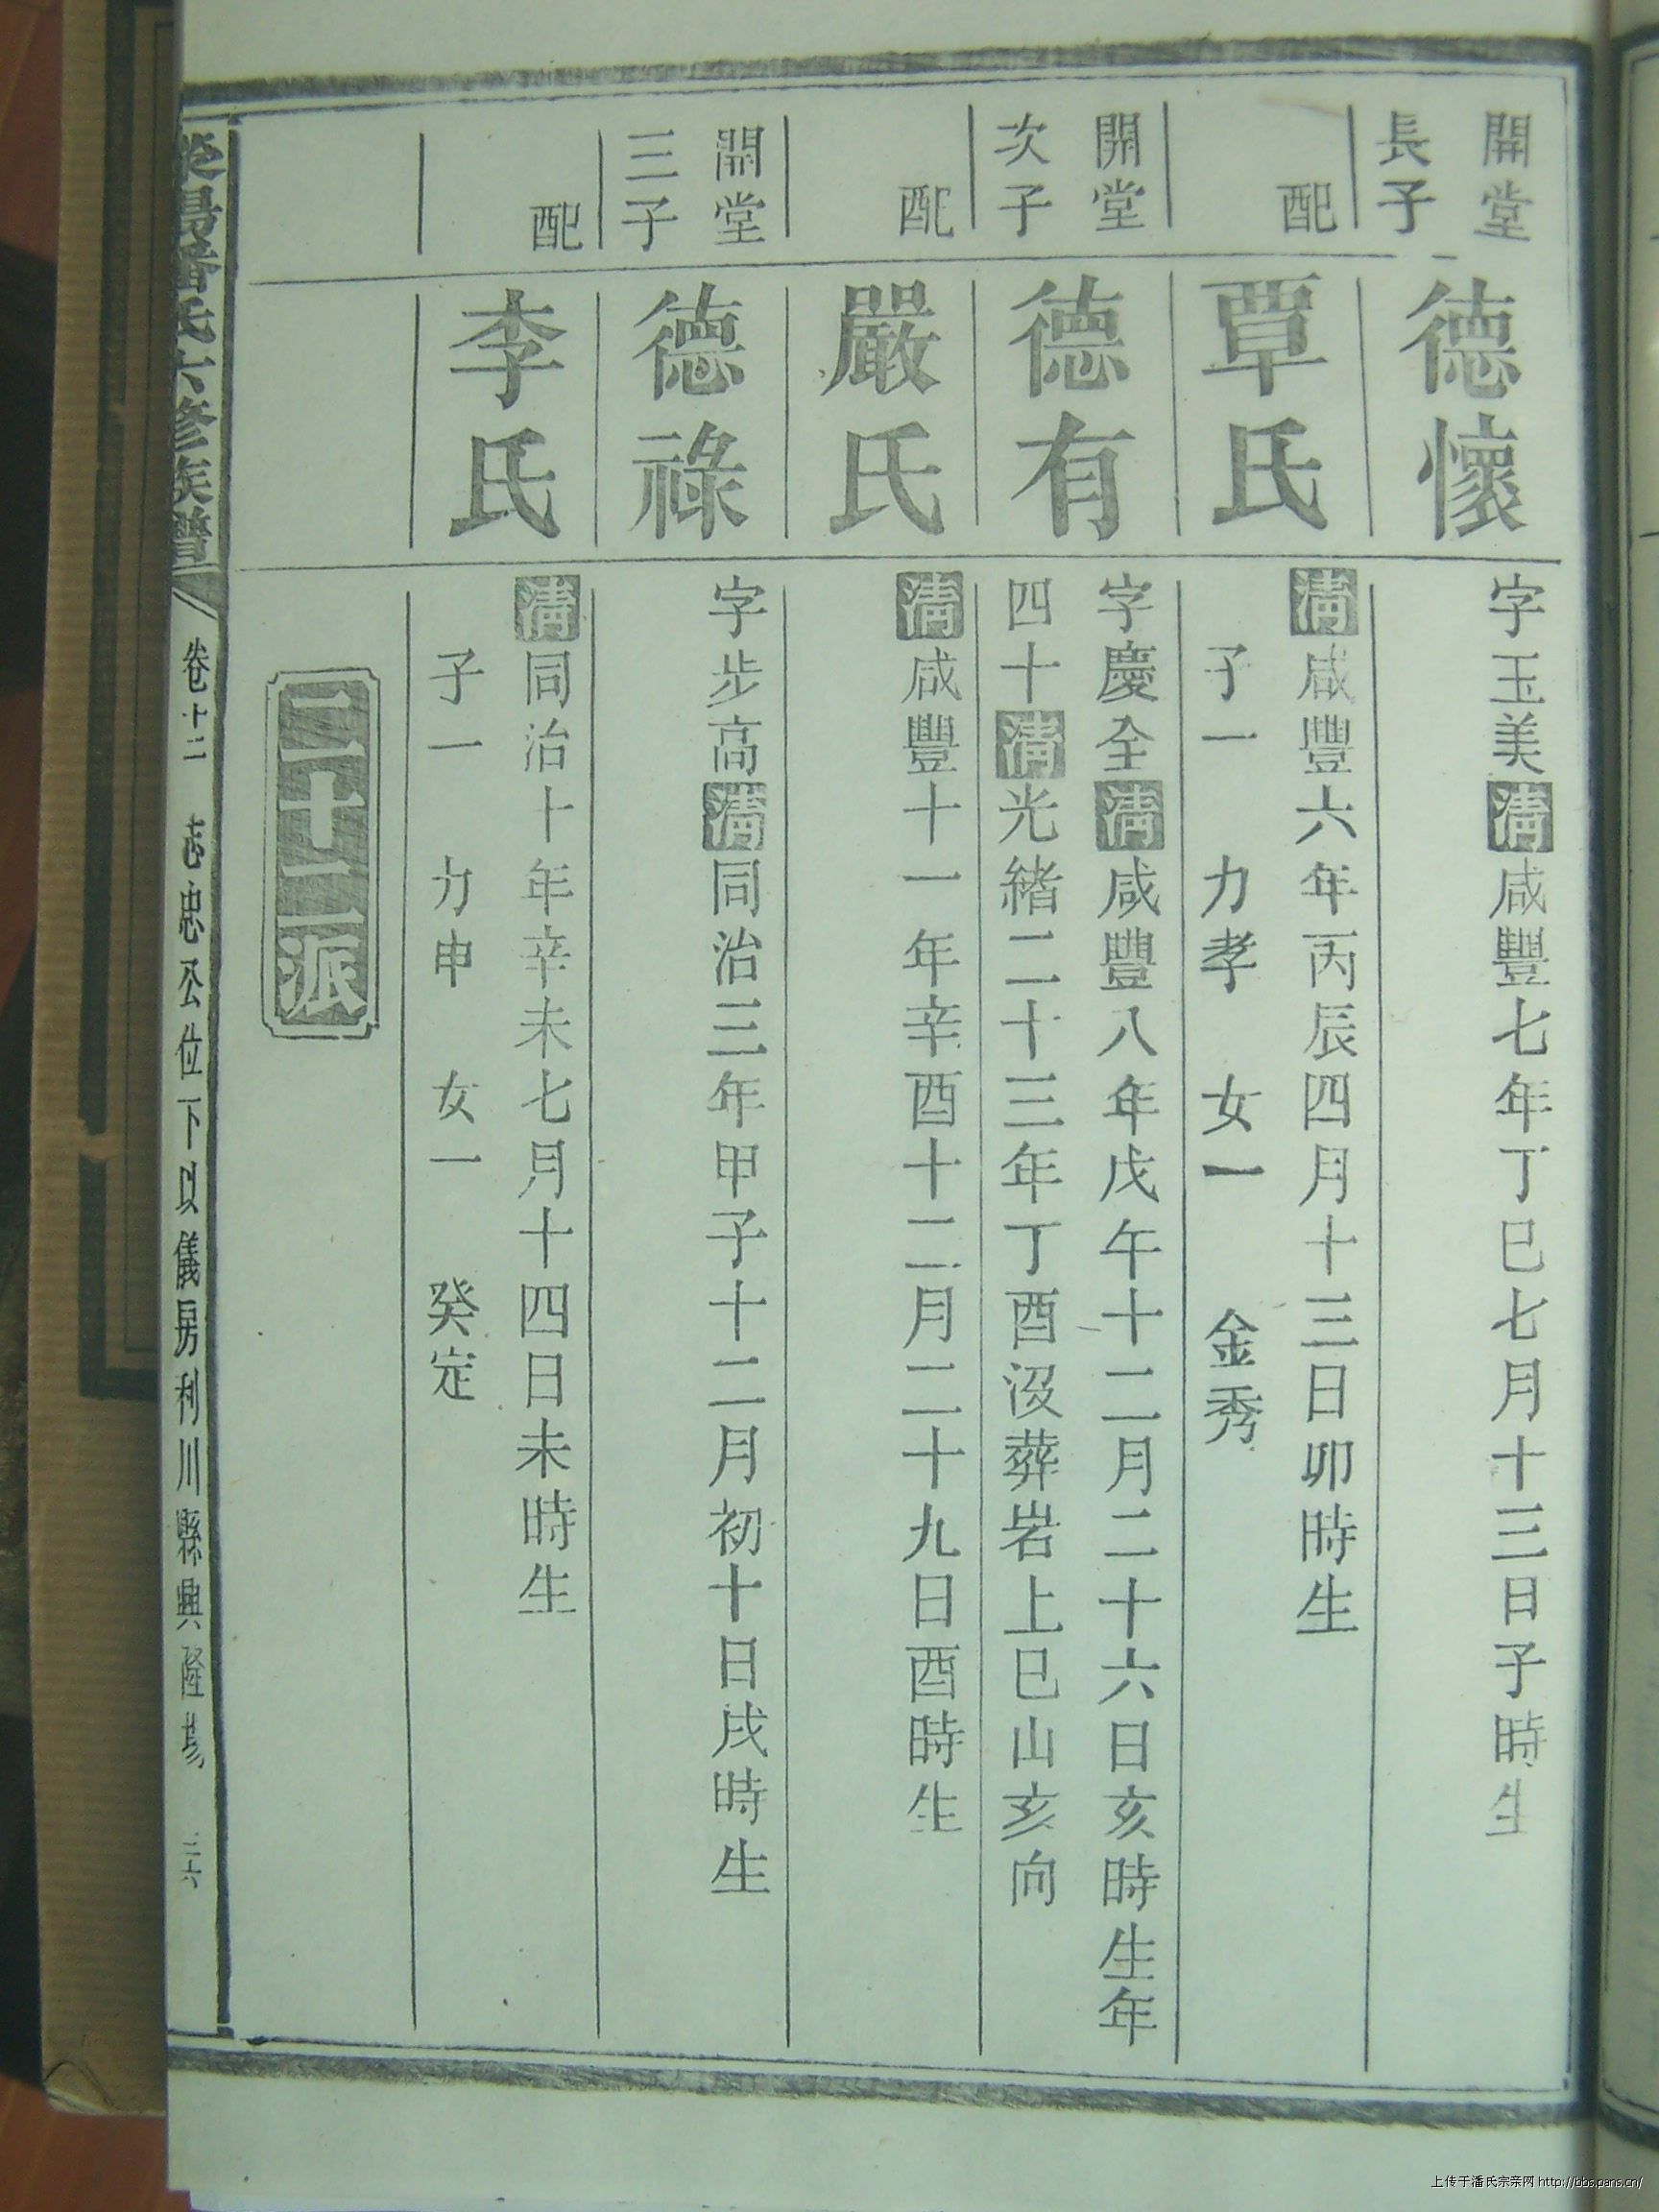 開堂
長子
德懷
字玉美清咸豐七年丁巳七月十三日子時生
配
覃氏
清咸豐六年丙辰四月十三日卯時生
子一 力孝 女一 金秀
開堂
次子
德有
字慶全清咸豐八年戊午十二月二十六日亥時生年
四十清光緒二十三年丁酉沒葬岩上巳山亥向
配
嚴氏
清咸豐十一年辛酉十二月二十九日酉時生
開堂
三子
德祿
字步高清同治三年甲子十二月初十日戌時生
配
李氏
清同治十年辛未七月十四日未時生
子一 力申 女一 癸定
二十二派
滎陽潘氏六修族譜
卷十二 志忠公位下以儀房利川縣興隆場 三六
上传于潘氏宗亲网 http://bbs.pans.cn/